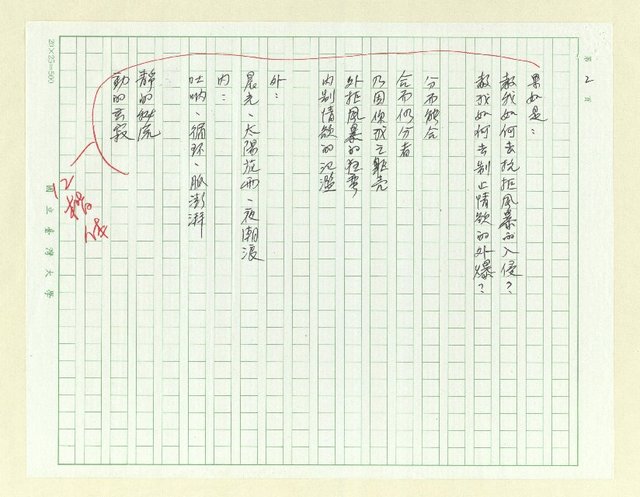 第 2 頁
果如是：
教我如何去抗拒風暴的入侵？
教我如何去制止情欲的外爆？
分而能合
合而仍分者
乃因依我之軀壳
外拒風暴的狂彎
內制情欲的氾濫
外：
晨光、太陽、旋雨、夜潮浪
內：
吐吶、循环、脈澎湃
靜的
動的玄寂
12
國立臺灣大學
20×25=500